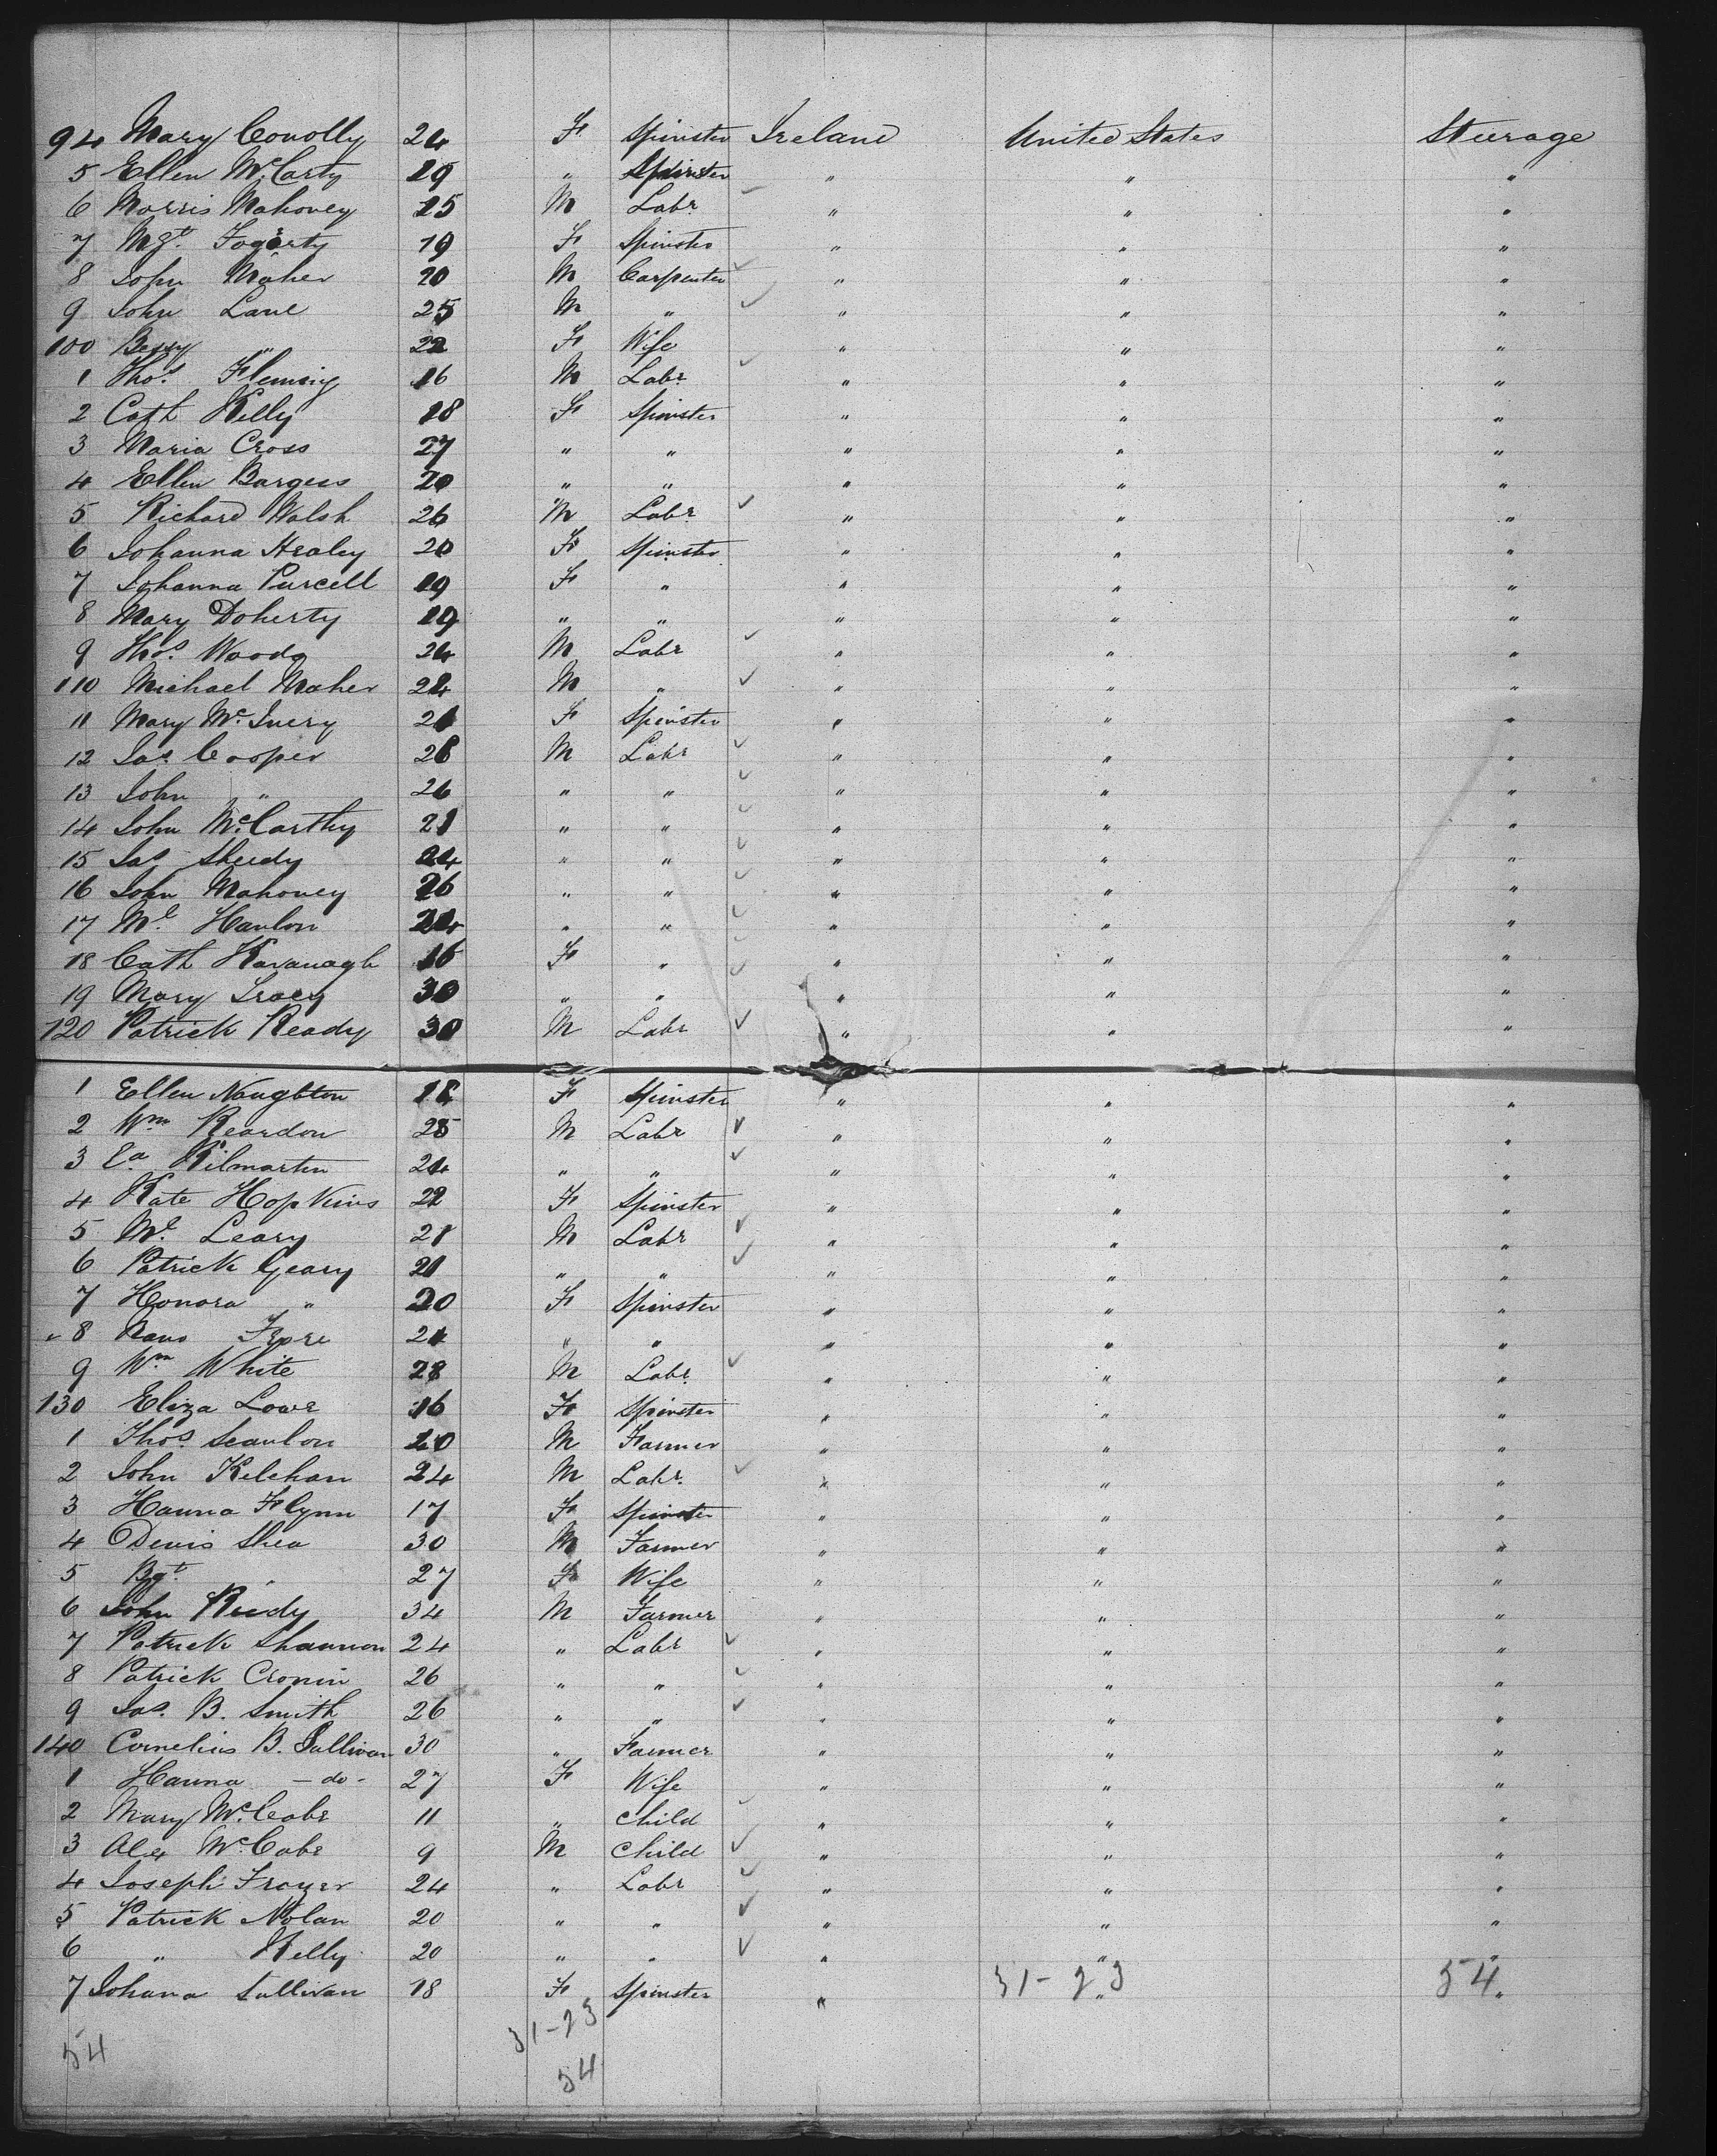 94 Mary Conolly 24 F Spinster Ireland United States Steerage
5 Ellen McCarty 19 " Spinster " " "
6 Morris Mahoney 25 M Labr " " "
7 Mgt. Fogerty 19 F Spinster " " "
8 John Maher 20 M Carpenter " " "
9 John Lane 25 M " " " "
100 Bessy " 22 F Wife " " "
1 Thos. Fleming 16 M Labr " " "
2 Cath Kelly 18 F Spinster " " "
3 Maria Cross 27 " " " " "
4 Ellen Burgess 20 " " " " "
5 Richard Walsh 26 M Labr " " "
6 Johanna Healey 20 F Spinster " " "
7 Johanna Purcell 19 F " " " "
8 Mary Doherty 19 " " " " "
9 Thos. Woods 24 M Labr " " "
110 Michael Maher 22 M " " " "
11 Mary McInery 21 F Spinster " " "
12 Jas. Cooper 28 M Labr " " "
13 John " 26 " " " " "
14 John McCarthy 21 " " " " "
15 Jas Sheedy 24 " " " " "
16 John Mahoney 26 " " " " "
17 Ml. Hanlon " " " " "
18 Cath Kavanagh 16 F " " " "
19 Mary Tracy 30 " " " " "
120 Patrick Ready 30 M Labr " " "
1 Ellen Naughton 18 F Spinster " " "
2 Wm Reardon 25 M Labr " " "
3 Kilmartin 24 " " " " "
4 Kate Hopkins 22 F Spinster " " "
5 Ml. Leary 21 M Labr " " "
6 Patrick Geary 21 " " " " "
7 Honora " 20 F Spinster " " "
8 21 " " " " "
9 Wm White 28 M Labr " " "
130 Eliza Lowe 16 F Spinster " " "
1 Thos. Scanlon 20 M Farmer " " "
2 John Kelehan 24 M Labr. " " "
3 Hanna Flynn 17 F Spinster " " "
4 Denis Shea 30 M Farmer " " "
5 Bgt. " 27 F Wife " " "
6 John Reidy 34 M Farmer " " "
7 Patrick Shannon 24 " Labr " " "
8 Patrick Cronin 26 " " " " "
9 Jas. B. Smith 26 " " " " "
140 Cornelius B. Sullivan 30 " Farmer " " "
1 Hanna - do - 27 F Wife " " "
2 Mary McCabe 11 " Child " " "
3 Alex McCabe 9 M Child " " "
4 Joseph Frazer 24 " Labr " " "
5 Patrick Nolan 20 " " " " "
6 " Kelly 20 " " " " "
7 Johana Sullivan 18 F Spinster " " "
31-23 54
31-23
54 54